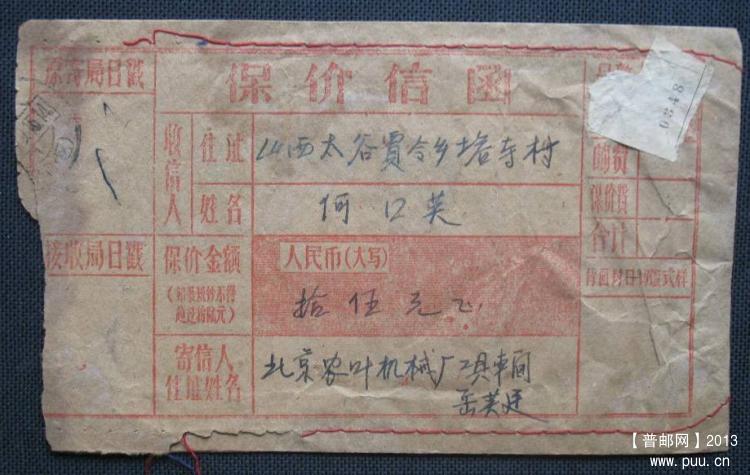 保价信函
原寄局日戳
接收局日戳
收信人
住址
山西太谷贾令乡塔寺村
姓名
何口英
保价金额
人民币(大写)
拾伍元正
寄信人
住址姓名
北京农叶机械厂工具车间
岳英廷
0848
邮资
保价费
合计
背面封口拆验式样
【普邮网】2013
www.puu.cn